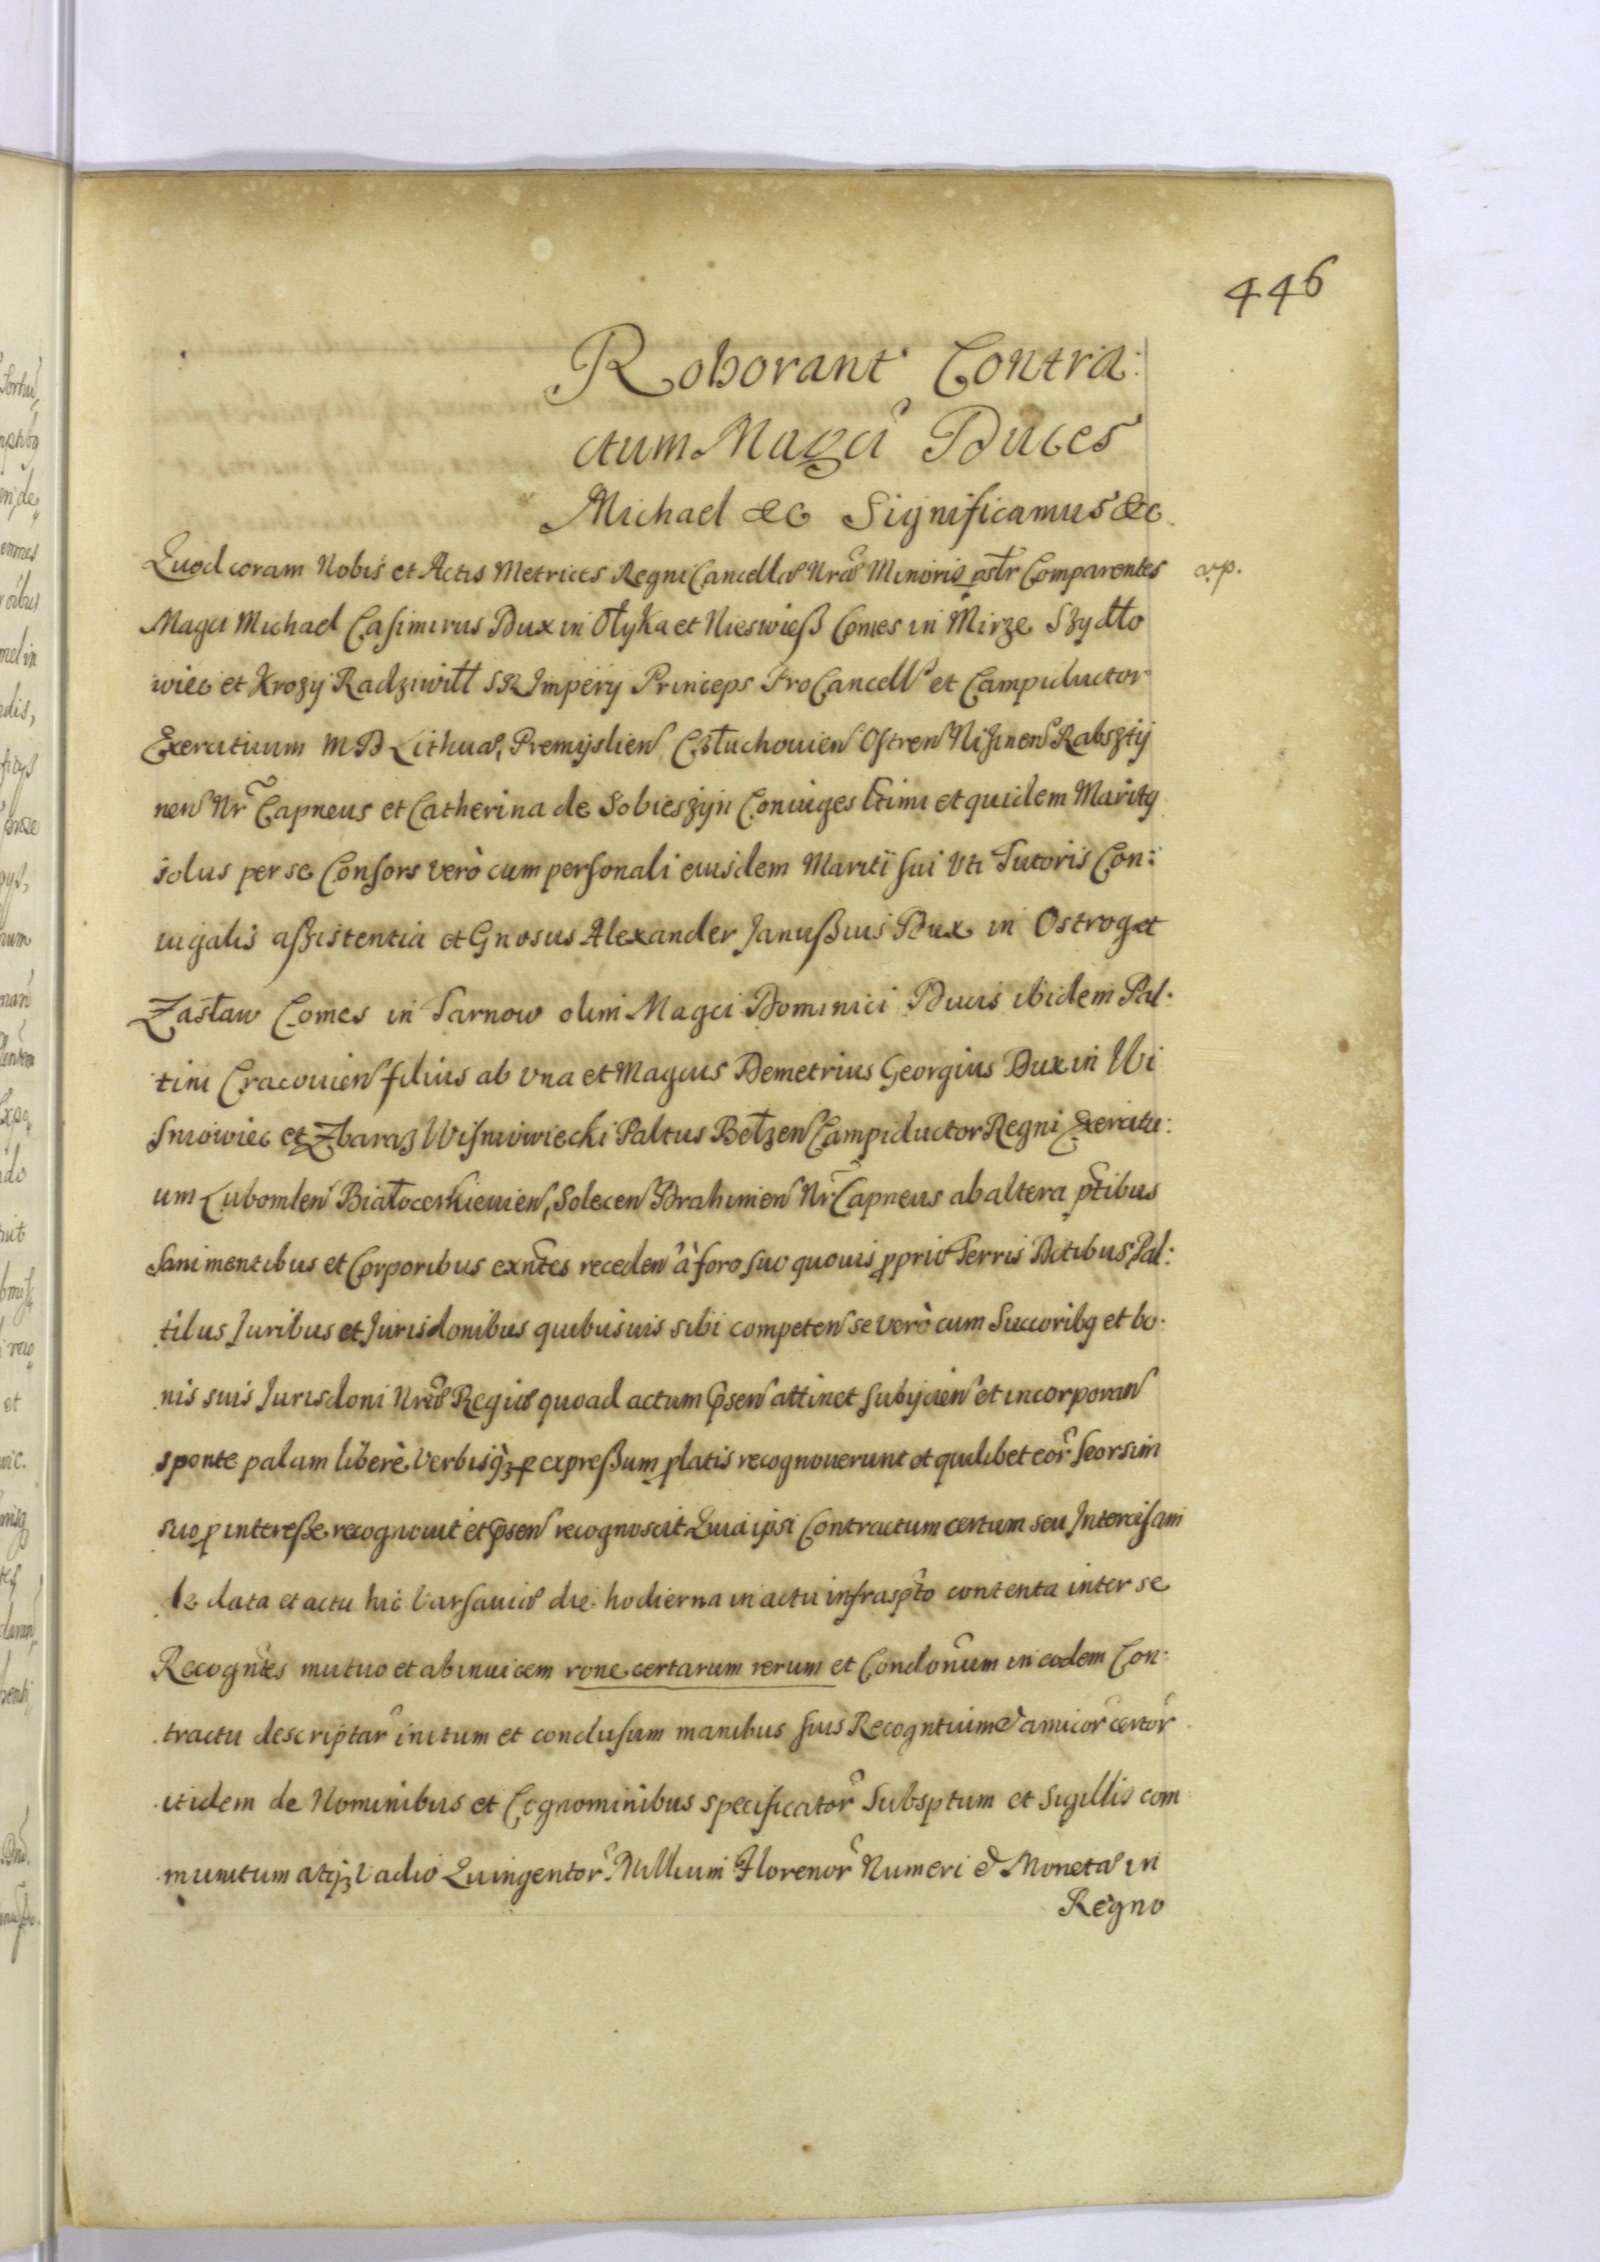 446
Roborant Contra:
ctum Magci Duces
Michael &c Significamus &c
Quod coram Nobis et Actis Metrices Regni Cancellae Nrae Minoris pstr Comparentes
a.p.
Magci Michael Casimirus Dux in Ołyka et Nieswieß Comes in Mirze Szydło
wiec et Krozy Radziwiłł S.R. Impery Princeps ProCancells et Campiductor
Exercituum M D Lithuae, Premyslien Człuchouien Ostren Niżinen Rabsztÿ
nen Nr Capneus et Catherina de Sobieszÿn Coniuges ltimi et quidem Maritq
solus per se Consors verò cum personali eiusdem Mariti sui Vti Tutoris Con:
iugalis aßistentia et Gnosus Alexander Janußius Dux in Ostrog et
Zasław Comes in Tarnow olim Magci Dominici Ducis ibidem Pal:
tini Cracouien filius ab vna et Magcus Demetrius Georgius Dux in Wi
sniowiec et Zbaraz Wisniowiecki Paltus Bełzen Campiductor Regni Exercitu:
um Lubomlen Białocerkieuien, Solecen Brahinien Nr Capneus ab altera ptibus
Sani mentibus et Corporibus exntes receden à foro suo quouis pprio Terris Dctibus Pal:
tibus Juribus et Jurisdonibus quibusuis sibi competen se verò cum Succoribq et bo:
nis suis Jurisdoni Nrae Regiae quoad actum psen attinet subijcien et incorporan
sponte palam liberè verbisq; p expreßum platis recognouerunt et quilibet eor seorsim
suo p intereße recognouit et psen recognoscit Quia ipsi Contractum certum seu Intercisam
de data et actu hic Varsauiae die hodierna in actu infraspto contenta inter se
Recogntes mutuo et abinuicem rone certarum rerum et Condonum in eodem Con:
tractu descriptar initum et conclusum manibus suis Recogntium & amicor certor
itidem de Nominibus et Cognominibus specificator Subsptum et Sigillis com
munitum atq; Vadio Quingentor Millium Florenor Numeri & Monetae in
Regno